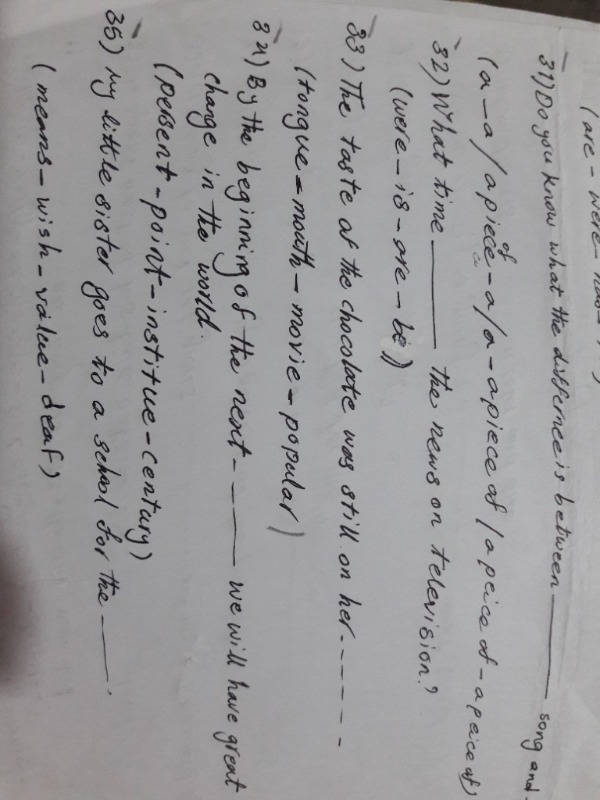 (are - were - has -
31) Do you know what the differnee is between ______ song and
(a - a / a piece of - a / a - a piece of / a peice of - a peice of)
32) What time ______ the news on television?
(were - is - are - be)
33) The taste of the chocolate was still on her ------
(tongue - mouth - movie - popular)
34) By the beginning of the next ______ we will have great
change in the world.
(persent - point - institue - century)
35) My little sister goes to a school for the ______.
(means - wish - value - deaf)